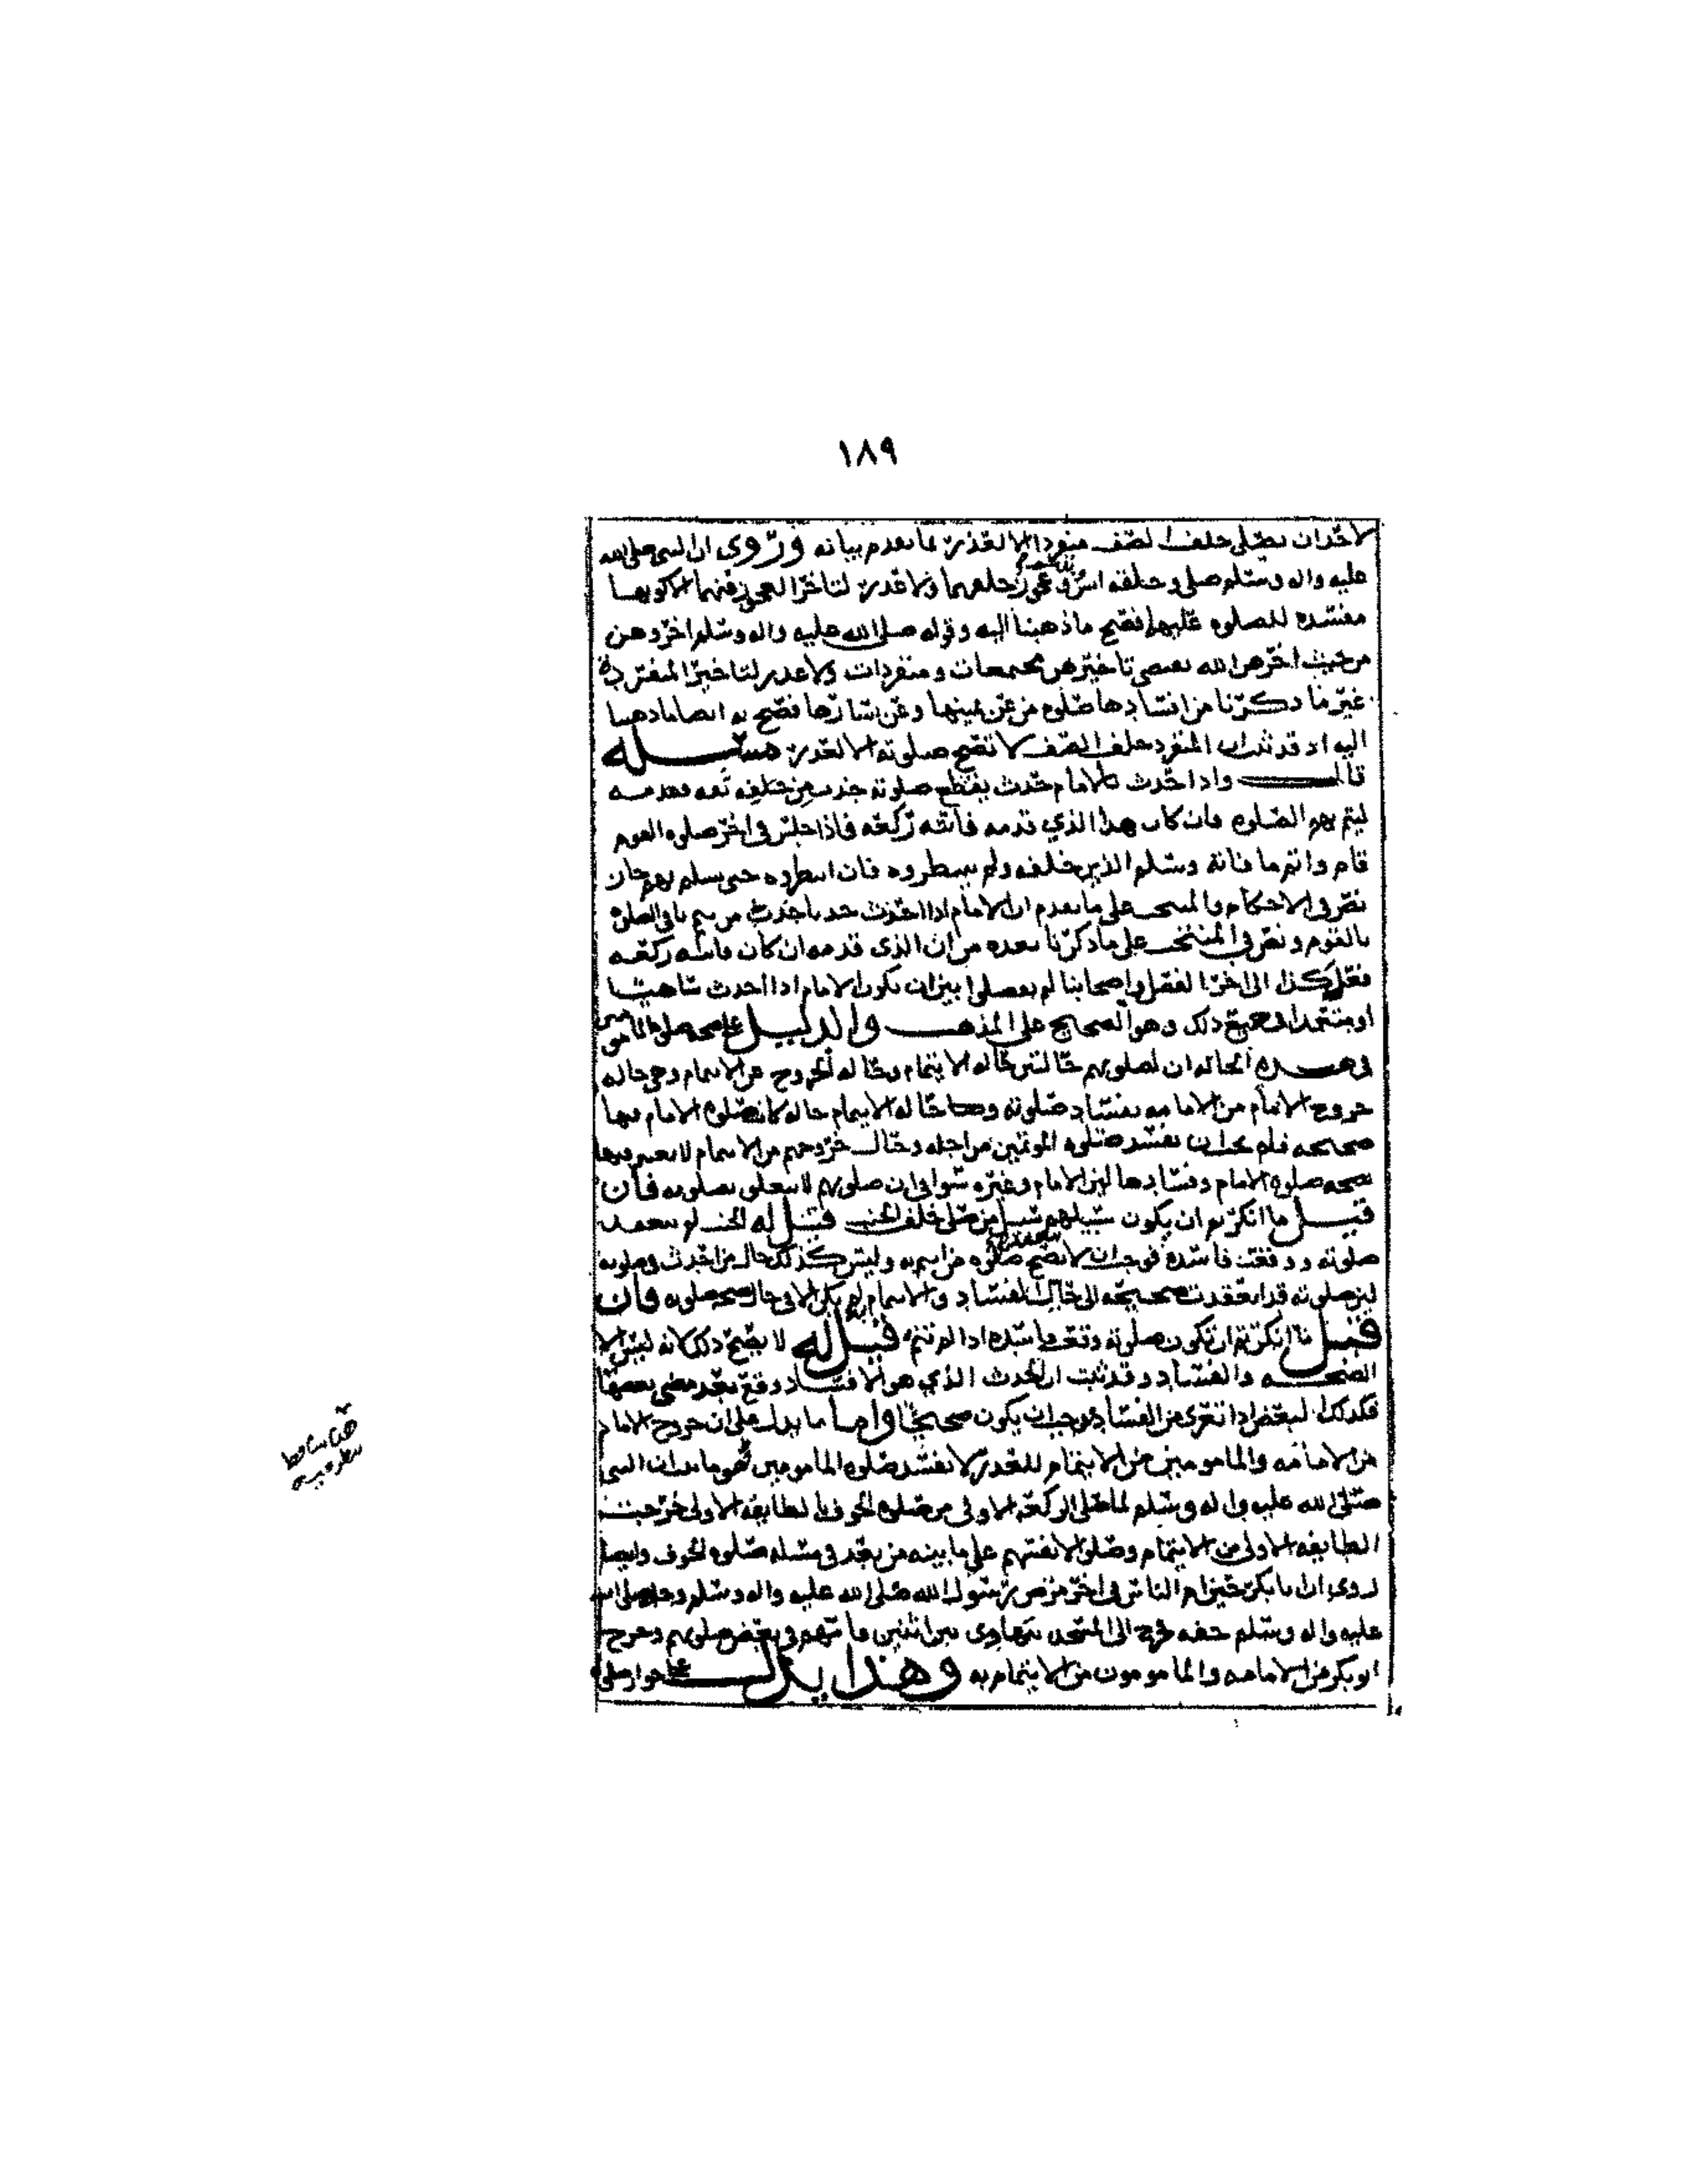 ١٨٩
لاحد ان يصلي خلف الصف منفردا الا لعذر لما تقدم بيانه وروي ان النبي صلى الله
عليه واله وسلم صلى وخلفه انس و عجوز خلفهما ولا عذر لتاخر العجوز فيهما الا كونها
مفسده للصلوه عليهما فصح ما ذهبنا اليه وقوله صلى الله عليه واله وسلم اخروهن
من حيث اخرهن الله يقتضي تاخيرهن مجتمعات ومنفردات ولا عذر لتاخير المنفرده
غير ما ذكرنا من افسادها صلوه من عن يمينها وعن يسارها فصح به ايضا ما ذهبنا
اليه اذ قد ثبت ان المنفرد خلف الصف لا تصح صلوته الا لعذر مسئله
قال واذا احدث بالامام حدث يقطع صلوته جذب من خلفه فقدمه
ليتم بهم الصلوه فان كان هذا الذي قدمه فاتته ركعه فاذا جلس في اخر صلوه القوم
قام واتم ما فاته وسلم الذين خلفه ولم ينتظروه فان انتظروه حتى يسلم بهم جاز
نص في الاحكام والمنتخب على ما تقدم ان الامام اذا احدث من يتم باقي الصلوه
بالقوم ونص في المنتخب على ما ذكرنا بعده من ان الذي قدمه ان كان فاتته ركعه
فعل كذا الى اخر الفصل واصحابنا لم يفصلوا بين ان يكون الامام اذا احدث ساهيا
او متعمدا في جميع ذلك وهو الصحيح على المذهب والدليل على صحه صلوه المامومين
في هذه الحاله ان لصلوتهم حالتين حاله الايتمام وحاله الخروج عن الايتمام وهي حاله
خروج الامام من الامامه بفساد صلوته حاله الايتمام حاله كانت صلوه الامام فيها
صحيحه فلم يجب ان تفسد صلوه المؤتمين من اجله وحال خروجهم من الايتمام لا يعتبر فيها
بصحه صلوه الامام وفسادها لان الامام وغيره سوا في ان صلوتهم لا تتعلق بصلوته فان
قيل ما انكرتم ان يكون سبيلهم سبيل من صلى خلف الجنب قيل له الجنب لم تنعقد
صلوته ووقعت فاسده فوجب ان لا تصح صلوه من ايتم به وليس كذلك حال من احدث في صلوته
لان صلوته قد انعقدت صحيحه الى حال الفساد والايتمام لم يكن الا في حال صحه صلوته فان
قيل ما انكرتم ان تكون صلوته وقعت فاسده اذا لم تتم قيل له لا يصح ذلك لانه ليس الا
الصحه والفساد وقد ثبت ان الحدث الذي هو الافساد وقع بعد مضي بعضها
فكذلك البعض اذا تعرى من الفساد فوجب ان يكون صحيحا واما ما يدل على ان خروج الامام
من الامامه والمامومين من الايتمام للعذر لا تفسد صلوه المامومين فهو ما ان النبي
صلى الله عليه واله وسلم لما صلى الركعه الاولى من صلوه الخوف بالطايفه الاولى خرجت
الطايفه الاولى من الايتمام وصلوا لانفسهم على ما بينه من بعد في مسئله صلوه الخوف وايضا
روي ان ابا بكر حين ام الناس في اخر مرض رسول الله صلى الله عليه واله وسلم وجد صلى الله
عليه واله وسلم خفه فخرج الى المسجد يتهادى بين اثنين فامهم في بعض صلوتهم وخرج
ابو بكر من الامامه والمامومون من الايتمام به وهذا يدل على جواز صلوه
هنا ساقط